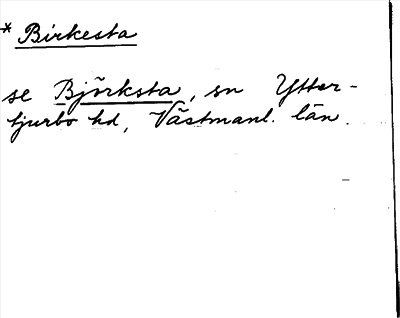 * Birkesta
se Björksta, sn Ytter-
tjurbo hd, Västmanl. län.